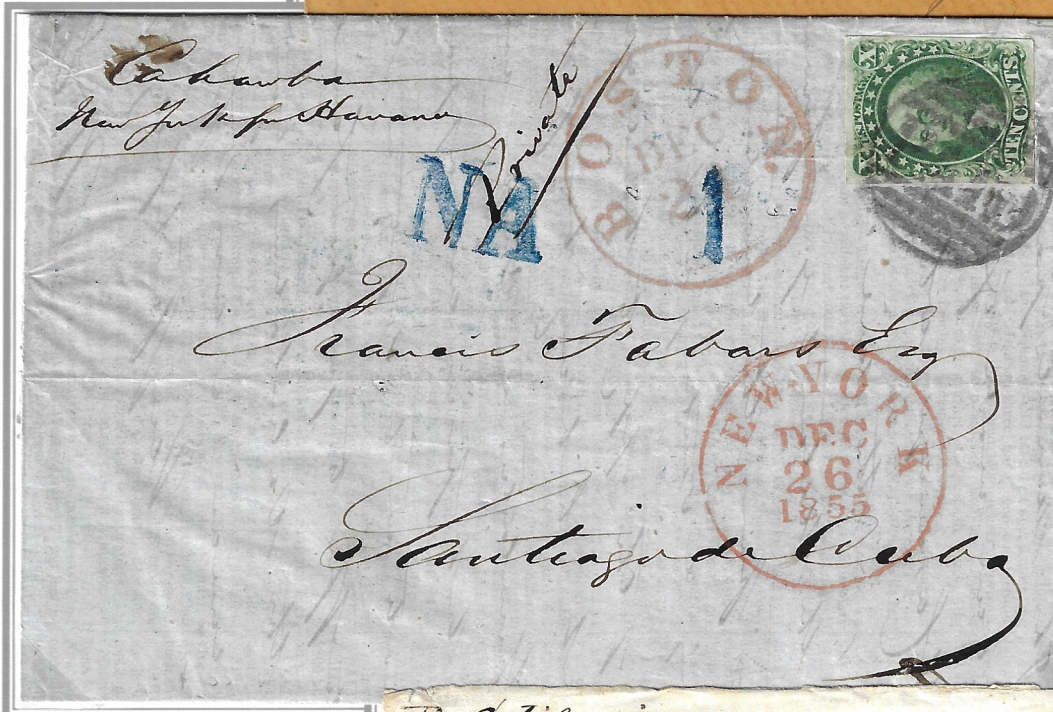 Cahawba
New York for Havana
Private
BOSTON.
DEC
NA
1
U.S. POSTAGE
X
X
TEN CENTS
Francis Tabars Esq
NEW-YORK
DEC
26
1855
Santiago de Cuba